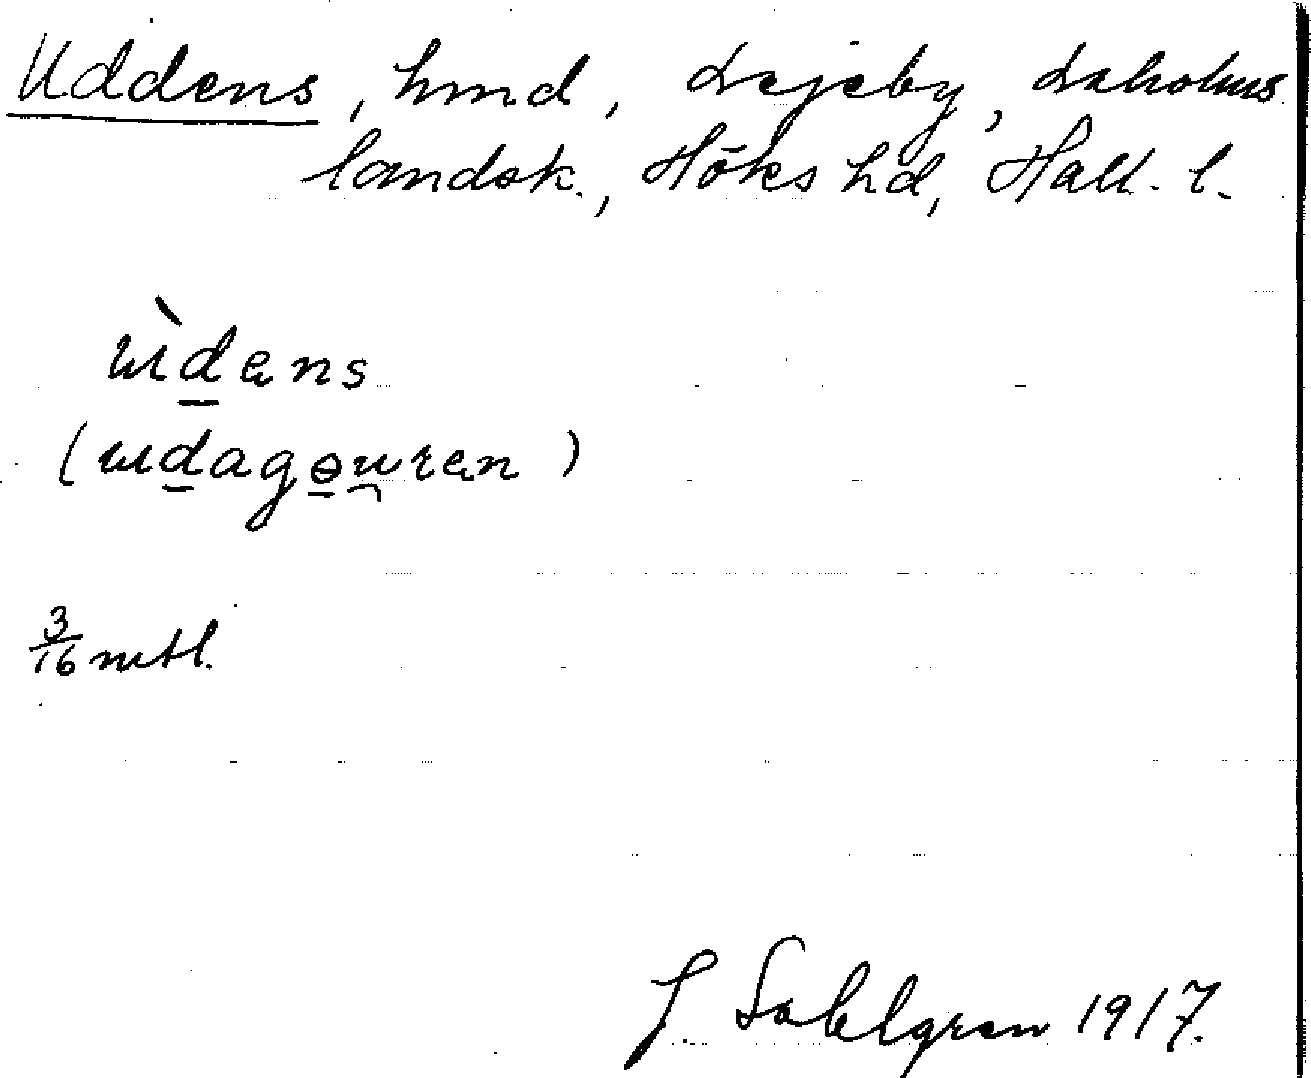 Uddens, hmd, Lejeby, Laholms
landsk., Höks hd, Hall. l.
ùdens
(udagouren)
3/16 mtl.
J. Sahlgren 1917.